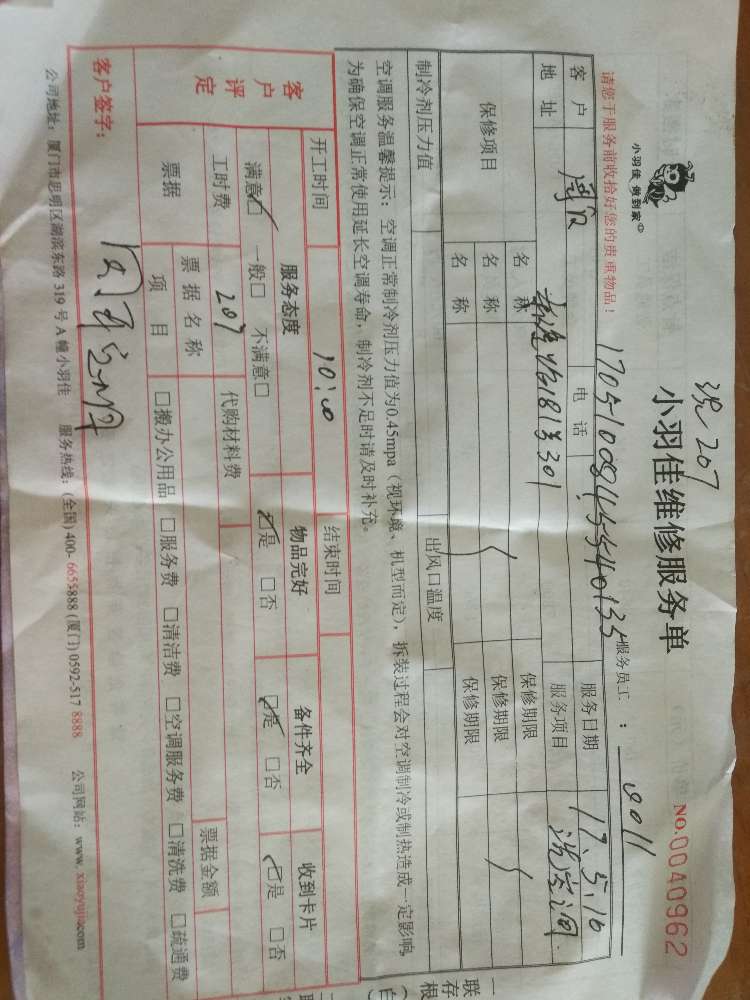 小羽佳 做到家
现207
小羽佳维修服务单
NO.0040962
请您于服务前收拾好您的贵重物品！
服务员工：
9011
客户
电话
服务日期
17.5.16
地址
301
服务项目
洗空调
保修项目
名称
保修期限
名称
保修期限
名称
保修期限
制冷剂压力值
出风口温度
空调服务温馨提示：空调正常制冷剂压力值为0.45mpa（视环境、机型而定），拆装过程会对空调制冷或制热造成一定影响，
为确保空调正常使用延长空调寿命，制冷剂不足时请及时补充。
开工时间
10:00
结束时间
客户评定
服务态度
物品完好
备件齐全
收到卡片
满意☑ 一般□ 不满意□
☑是 □否
☑是 □否
☑是 □否
工时费
207
代购材料费
票据
票据名称
票据金额
项目
□搬办公用品 □服务费 □清洁费 □空调服务费 □清洗费 □疏通费
客户签字：
公司地址：厦门市思明区湖滨东路319号A幢小羽佳 服务热线：(全国)400-6655888(厦门)0592-517 8888 公司网站：www.xiaoyujia.com
一联存根(白